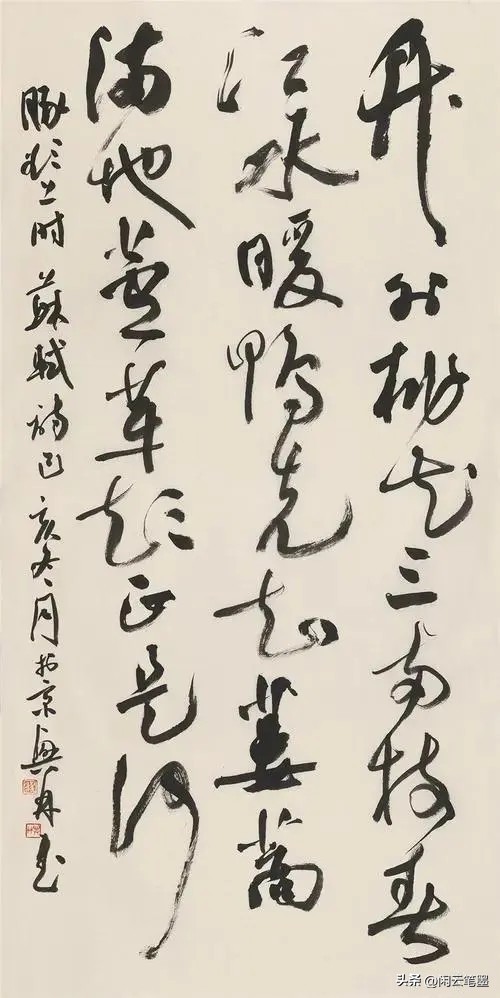 竹外桃花三两枝春
江水暖鸭先知蒌蒿
满地芦芽短正是河
豚欲上时 蘇軾诗 己亥冬月於京
头条 @闲云笔墨